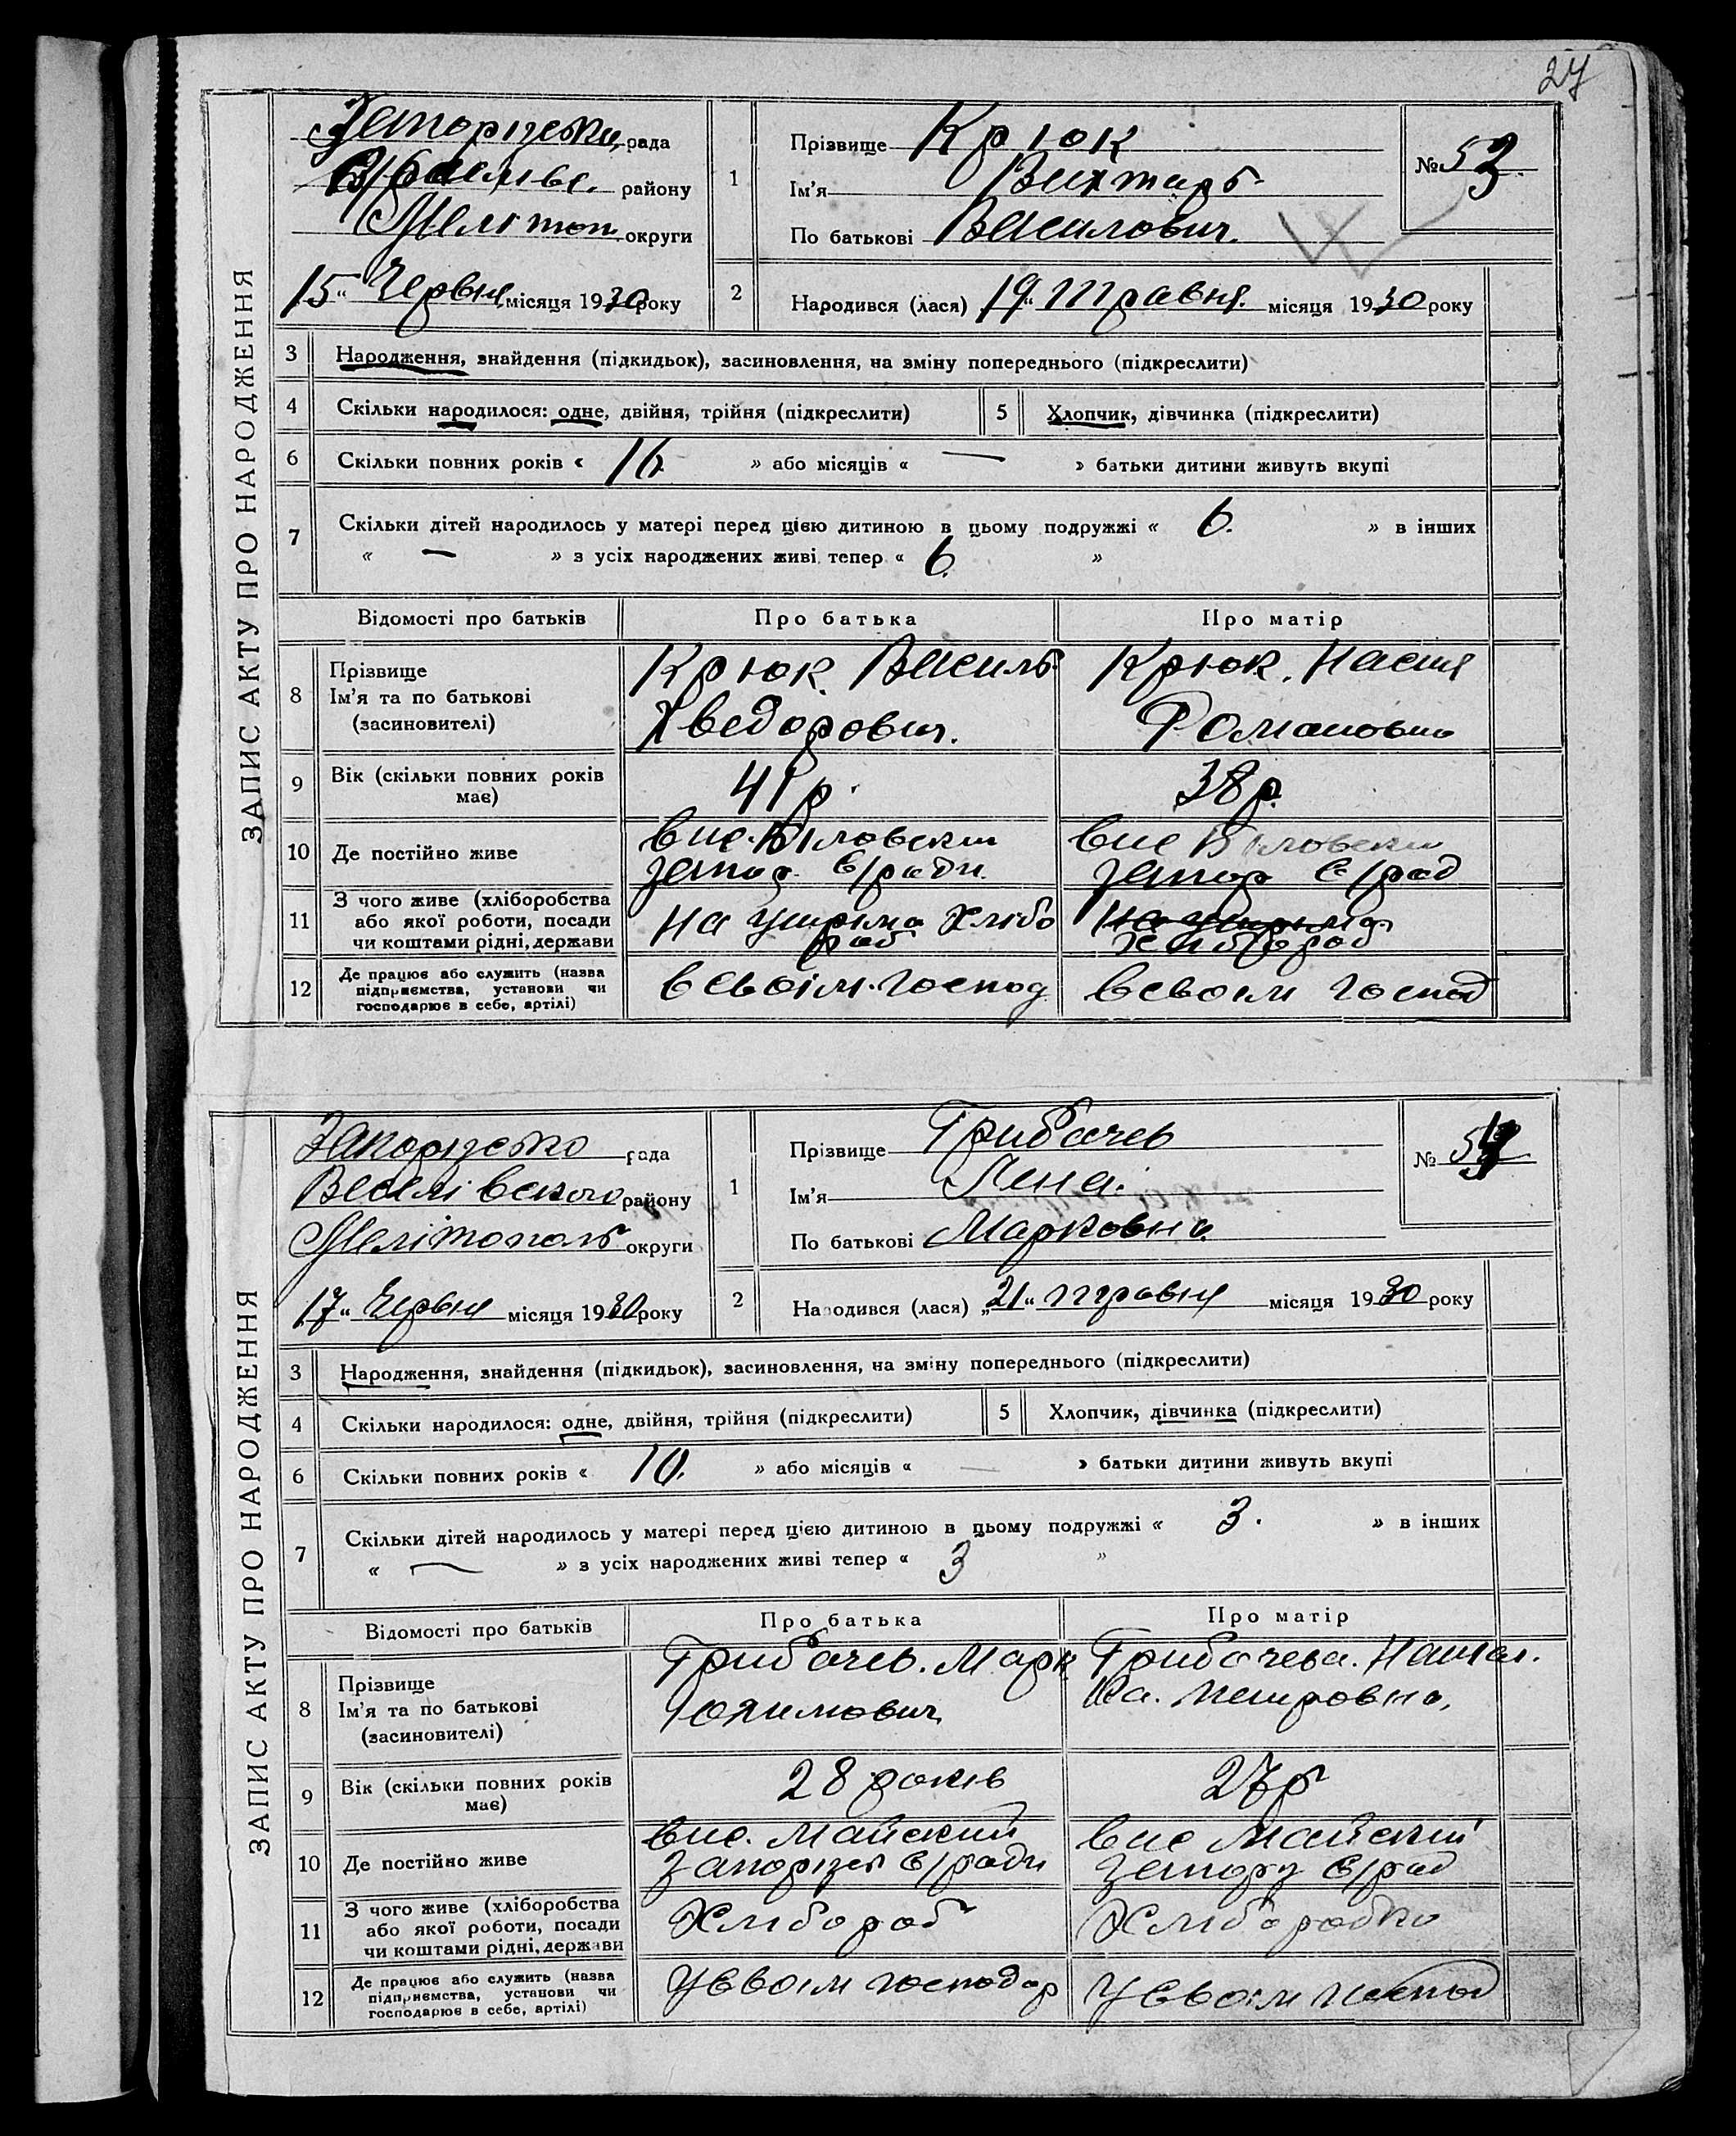 27
ЗАПИС АКТУ ПРО НАРОДЖЕННЯ
рада
району
Мелітоп округи
15 " Червня місяця 1930 року
1
Прізвище Крюк
Ім'я Вихтарь
По батькові Василович.
№ 53.
2
Народився (лася) 19 " Травня. місяця 1930 року
3 Народження, знайдення (підкидьок), засиновлення, на зміну попереднього (підкреслити)
4 Скільки народилося: одне, двійня, трійня (підкреслити) 5 Хлопчик, дівчинка (підкреслити)
6 Скільки повних років « 16 » або місяців « — » батьки дитини живуть вкупі
7 Скільки дітей народилось у матері перед цією дитиною в цьому подружжі « 6. » в інших
« — » з усіх народжених живі тепер « 6. »
Відомості про батьків Про батька Про матір
8 Прізвище
Ім'я та по батькові
(засиновителі)
Крюк. Василь
Хведорович.
Крюк. Настя
Романовна
9 Вік (скільки повних років
має)
41 р.
38 р.
10 Де постійно живе
вис.
с/ради.
вис
с/рад
11 З чого живе (хліборобства
або якої роботи, посади
чи коштами рідні, держави
На Хлібо
роб
Хлібороб
12 Де працює або служить (назва
підприємства, установи чи
господарює в себе, артілі)
в своім. господ
в своім господ
ЗАПИС АКТУ ПРО НАРОДЖЕННЯ
рада
Веселівського району
Мелітополь округи
17 " Червня місяця 1930 року
1
Прізвище Грибачев
Ім'я Лена.
По батькові Марковна.
№ 54
2
Народився (лася) „ 21 " травня місяця 1930 року
3 Народження, знайдення (підкидьок), засиновлення, на зміну попереднього (підкреслити)
4 Скільки народилося: одне, двійня, трійня (підкреслити) 5 Хлопчик, дівчинка (підкреслити)
6 Скільки повних років « 10. » або місяців « — » батьки дитини живуть вкупі
7 Скільки дітей народилось у матері перед цією дитиною в цьому подружжі « 3. » в інших
« — » з усіх народжених живі тепер « 3 »
Відомості про батьків Про батька Про матір
8 Прізвище
Ім'я та по батькові
(засиновителі)
Грибачев. Марк
Грибачева. Натал.
Петровна,
9 Вік (скільки повних років
має)
28 років
27 р
10 Де постійно живе
вис. Майский
с/ради
вис Майский
с/рад
11 З чого живе (хліборобства
або якої роботи, посади
чи коштами рідні, держави
Хлібороб
Хліборобка
12 Де працює або служить (назва
підприємства, установи чи
господарює в себе, артілі)
У своім господар
У своім господ